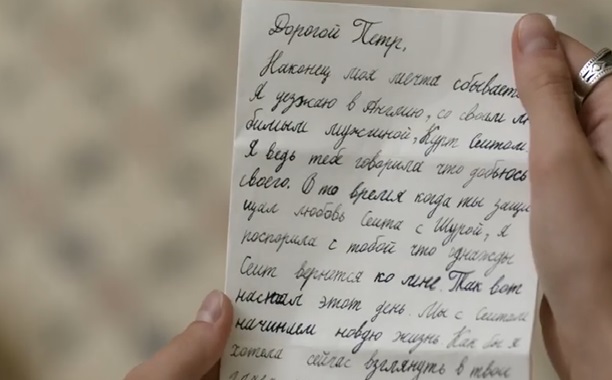 Дорогой Петр,
Наконец моя мечта сбывает
Я уезжаю в Англию, со своим лю
бимым мужчиной, Курт Сеитом
Я ведь тебе говорила что добьюсь
своего. В то время когда ты защи
щал любовь Сеита с Шурой, я
поспорила с тобой что однажды
Сеит вернется ко мне. Так вот
настал этот день. Мы с Сеитом
начинаем новую жизнь Как бы я
хотела сейчас взглянуть в твои